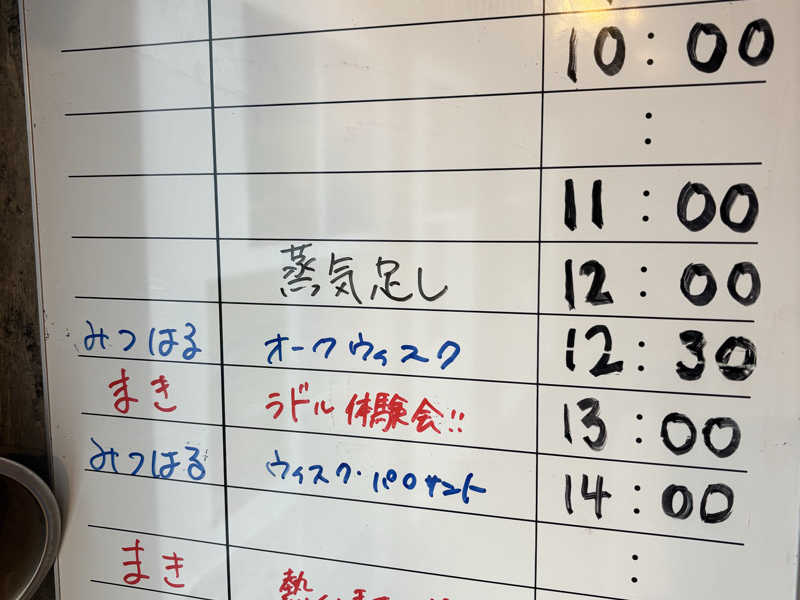 10:00
:
11:00
蒸気足し 12:00
みつはる オークウィスク 12:30
まき ラドル体験会!! 13:00
みつはる ウィスク・パロサント 14:00
:
まき 熱